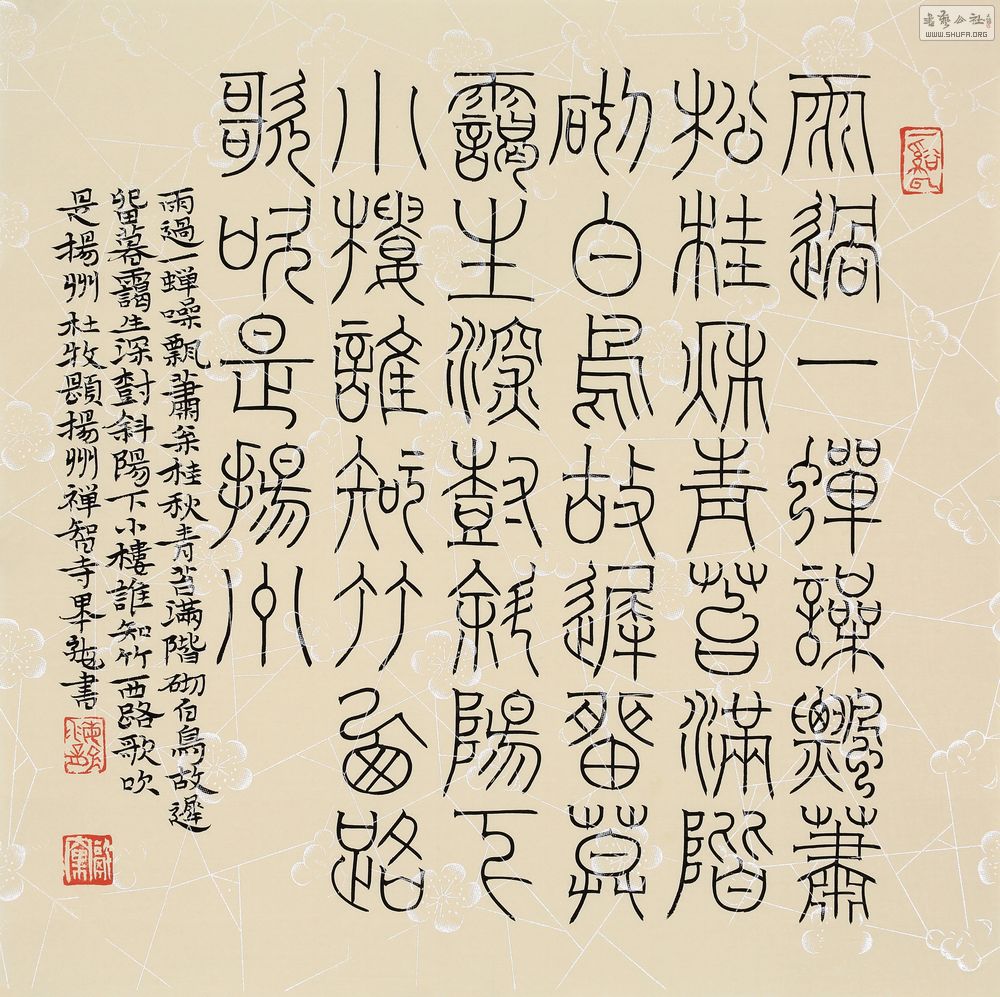 雨過一蟬噪飄蕭
松桂秋青苔滿階
砌白鳥故遲留暮
靄生深樹斜陽下
小樓誰知竹西路
歌吹是揚州
雨過一蝉噪飄蕭枩桂秋青苔滿階砌白鳥故遲
留暮靄生深樹斜陽下小樓誰知竹西路歌吹
是揚州杜牧題揚州禅智寺書
书艺公社
WWW.SHUFA.ORG